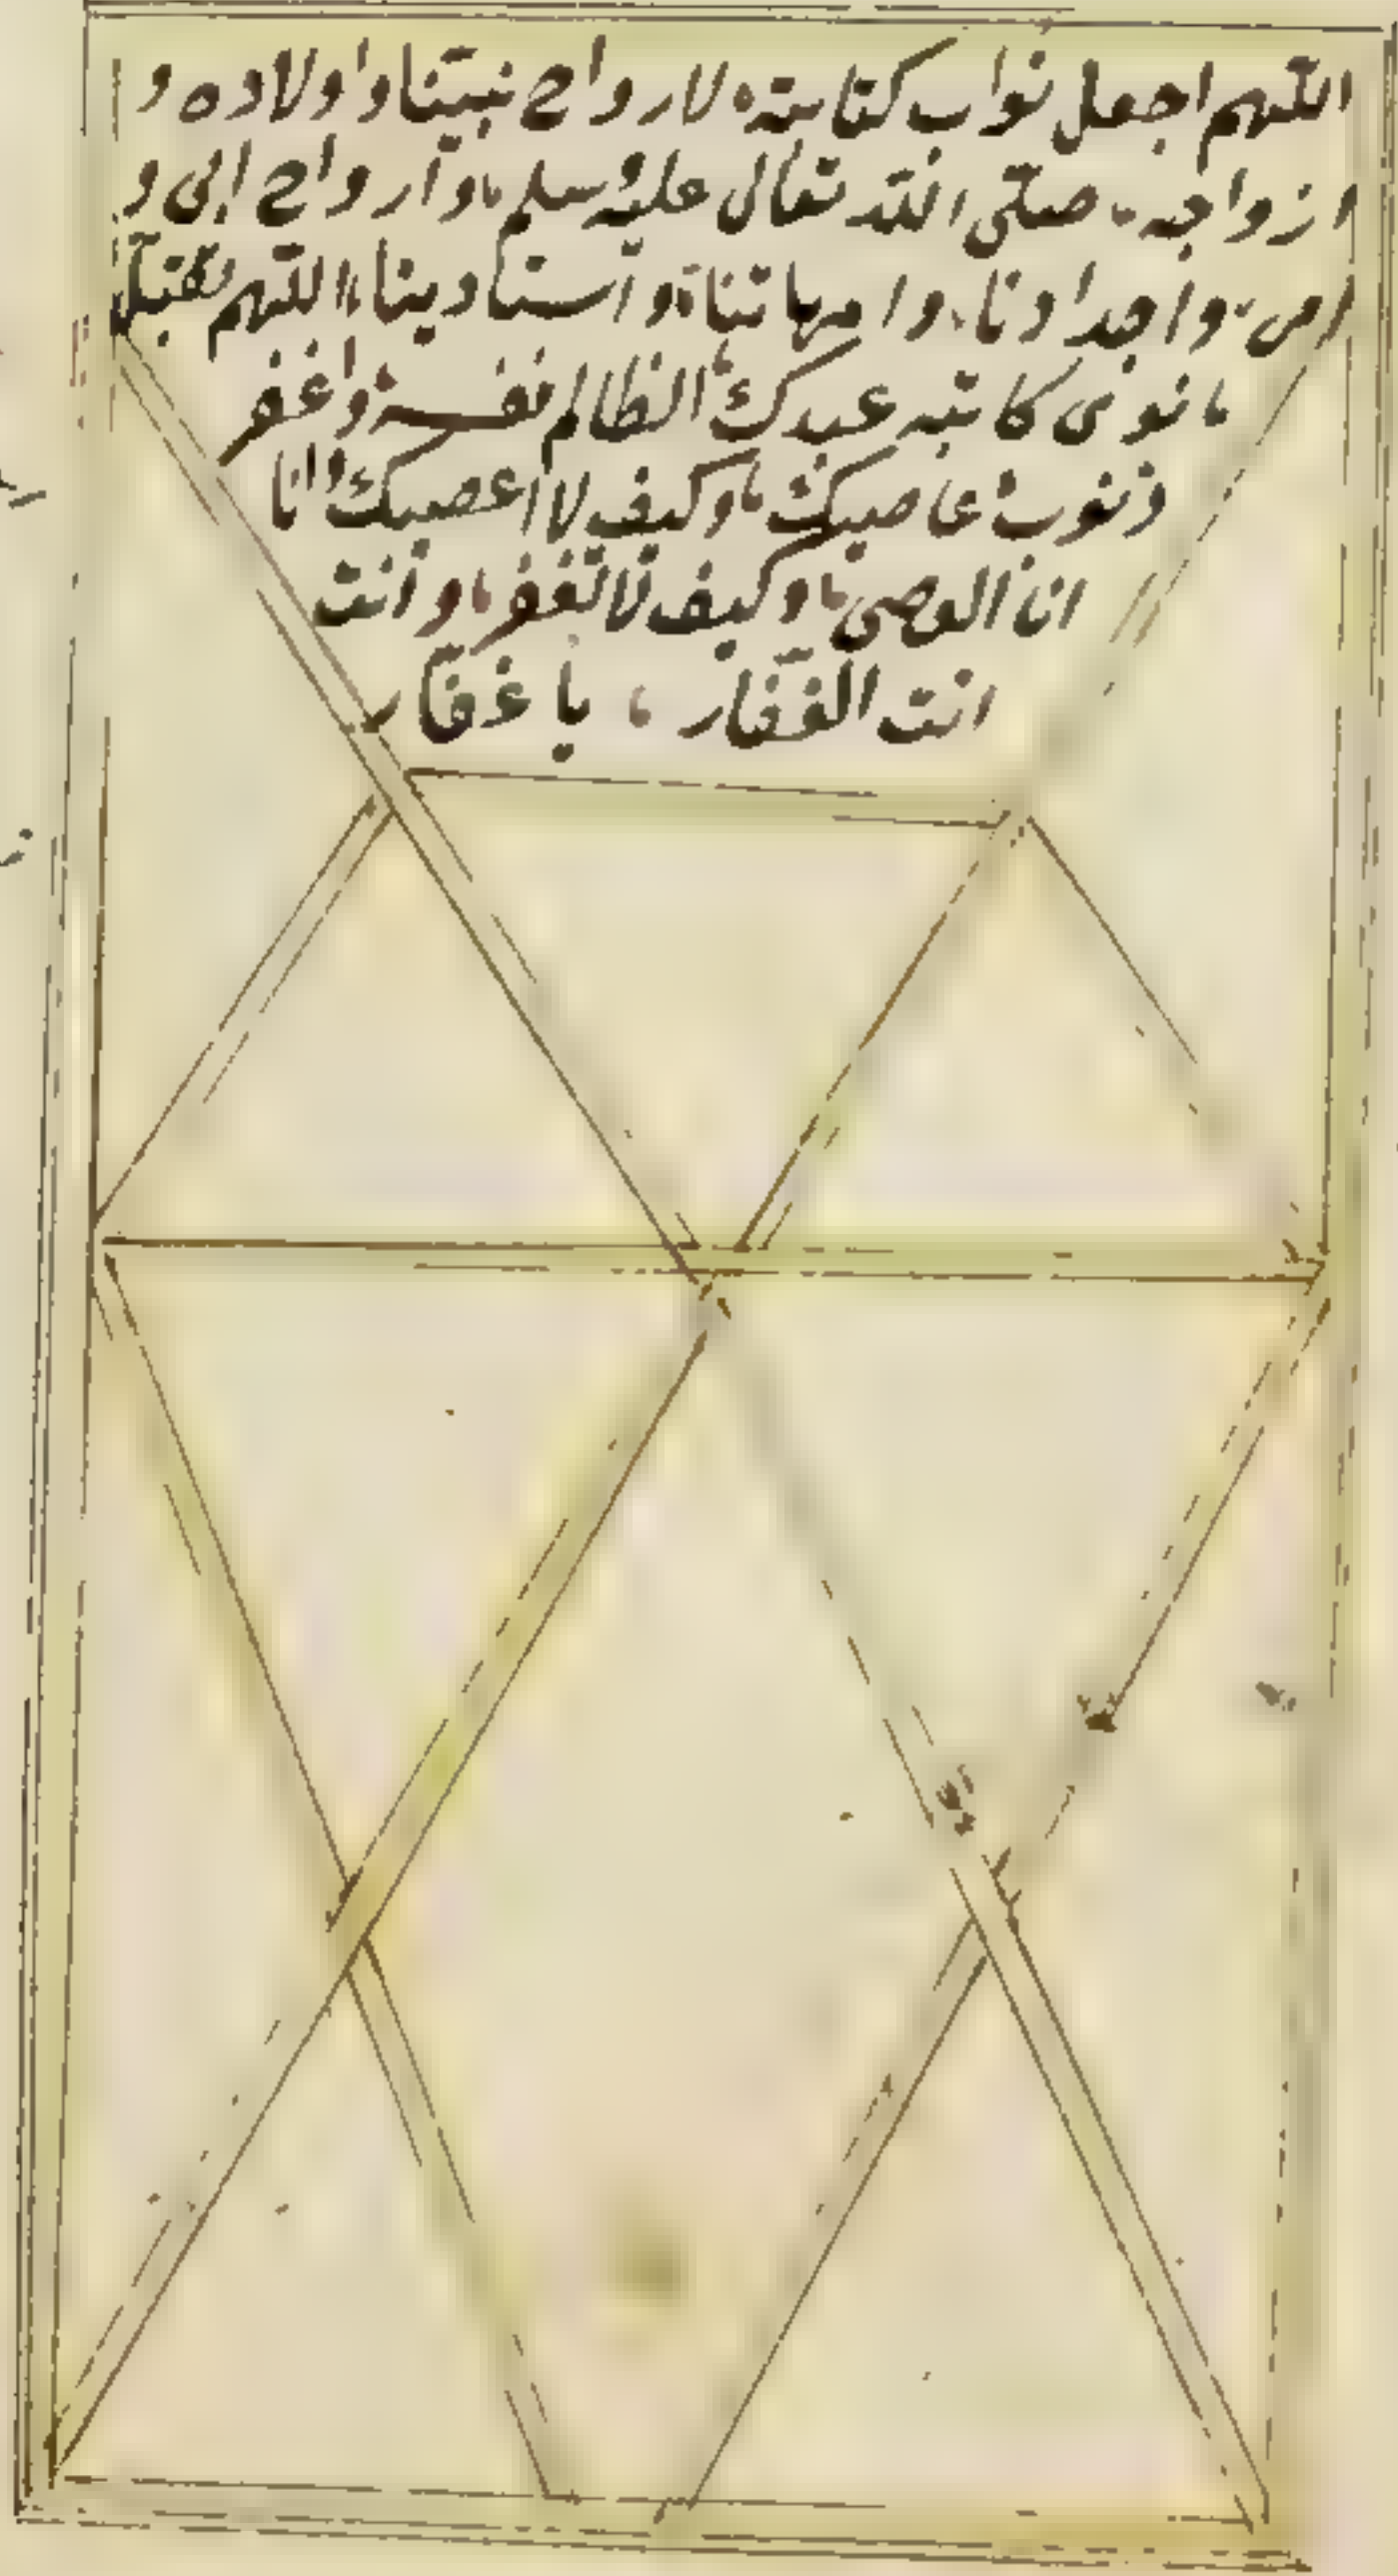 اللهم اجعل ثواب كتابته لارواح نبيّنا واولاده و
ازواجه صلّى الله تعالى عليه وسلم وارواح ابى و
امى واجدادنا وامهاتنا واستادينا اللهم تقبّل
كاتبه عبدك الظالم نفسه واغفر
ذنوب عاصيك وكيف لا اعصيك وانا
انا العصى وكيف لا تغفر وانت
انت الغفّار يا غفّار